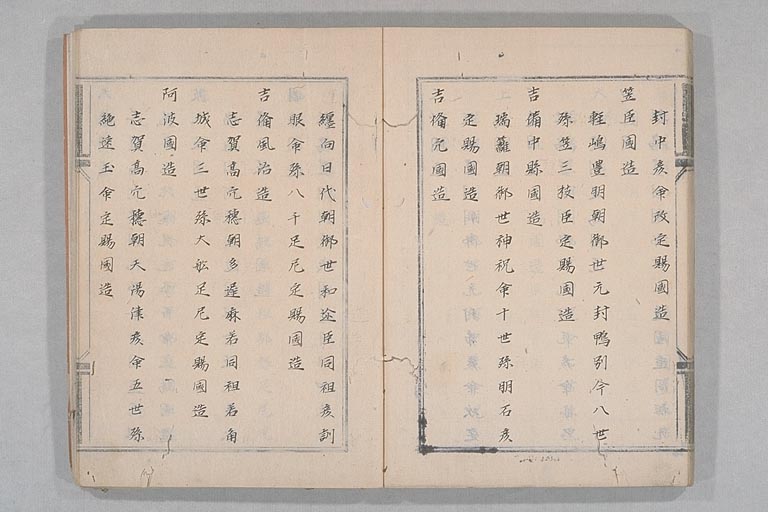 封中彦命改定賜國造
笠臣國造
輕嶋豊明朝御世元封鴨別命八世
孫笠三枝臣定賜國造
吉備中縣國造
瑞籬朝御世神祝命十世孫明石彦
定賜國造
吉備穴國造
纏向日代朝御世和迩臣同祖彦訓
服命孫八千足尼定賜國造
吉備風治造
志賀高穴穗朝多遅麻君同祖若角
城命三世孫大舩足尼定賜國造
阿波國造
志賀高穴穗朝天湯津彦命五世孫
絁速玉命定賜國造